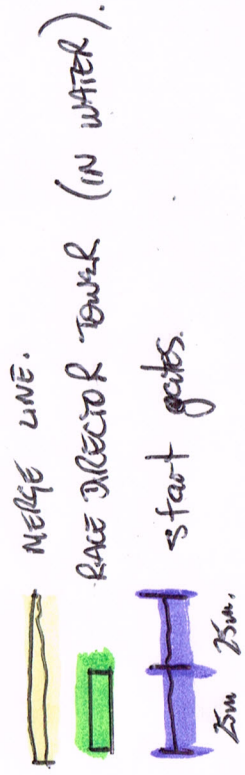 MERGE LINE.
RACE DIRECTOR TOWER (IN WATER).
start gates.
25m 25m.